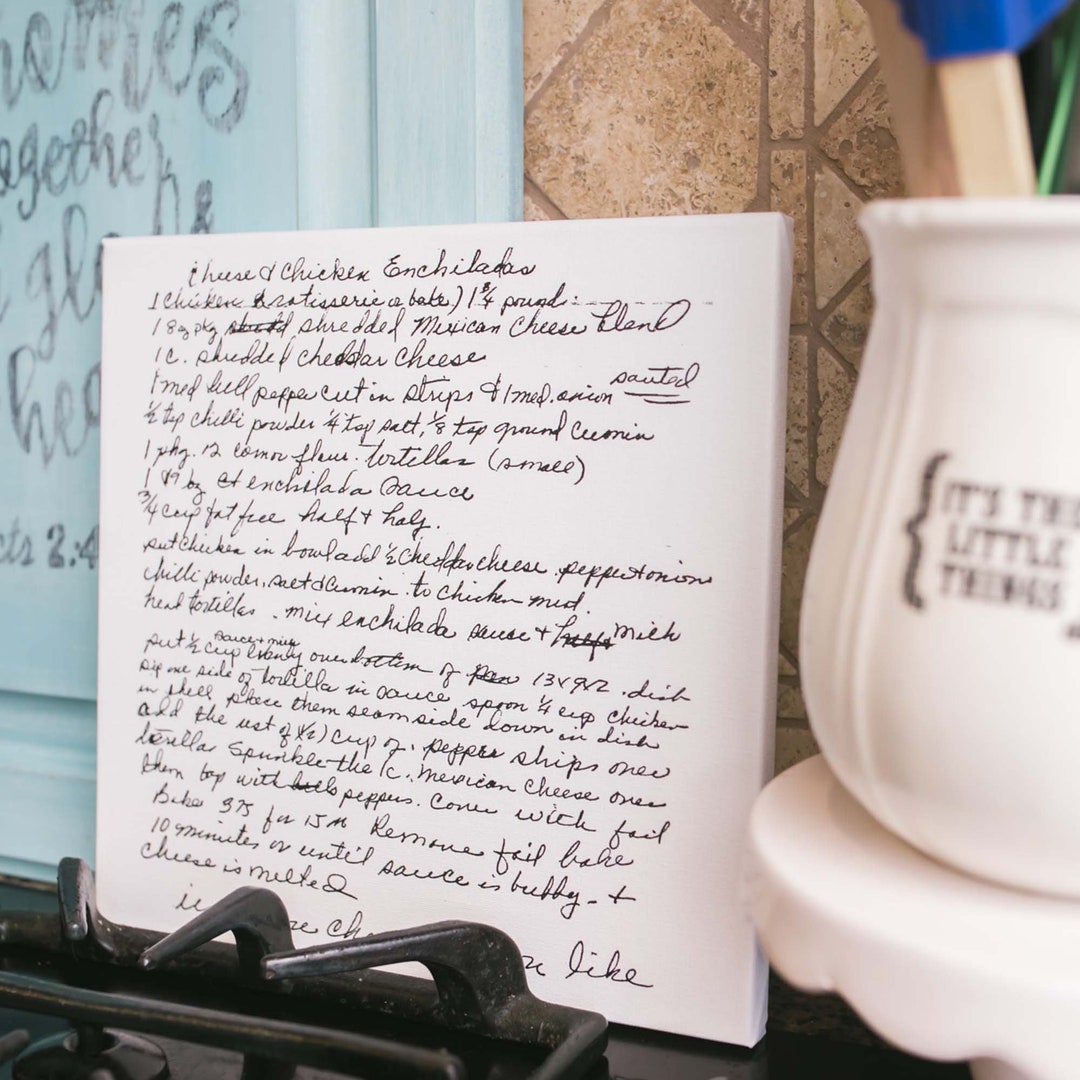 omes
together
gl
hea
cts 2:4
Cheese & Chicken Enchiladas
1 Chicken (rotisserie or bake) 1 3/4 pound
1 8oz pkg shredded Mexican Cheese blend
1 C. shredded cheddar cheese
1 med bell pepper cut in strips & 1 med. onion sauted
1/2 tsp chilli powder 1/4 tsp salt, 1/8 tsp ground Cumin
1 pkg. 12 flour tortillas (small)
1 enchilada sauce
3/4 cup fat free half + half.
put chicken in bowl add 1/2 cheddar cheese. pepper + onions
chilli powder, salt & cumin. to chicken mix.
heat tortillas. mix enchilada sauce + milk
sauce + milk
put 1/2 cup evenly over bottom of 13x9x2. dish
dip one side of tortilla in sauce spoon 1/4 cup chicken
in shell place them seam side down in dish
add the rest of (1/2) cup of. pepper strips over
tortillas Sprinkle the 1c. Mexican Cheese over
them top with peppers. Cover with foil
Bake 375 for 15 m Remove foil bake
10 minutes or until sauce is bubbly. +
cheese is melted
like
{ IT'S THE
LITTLE
THINGS